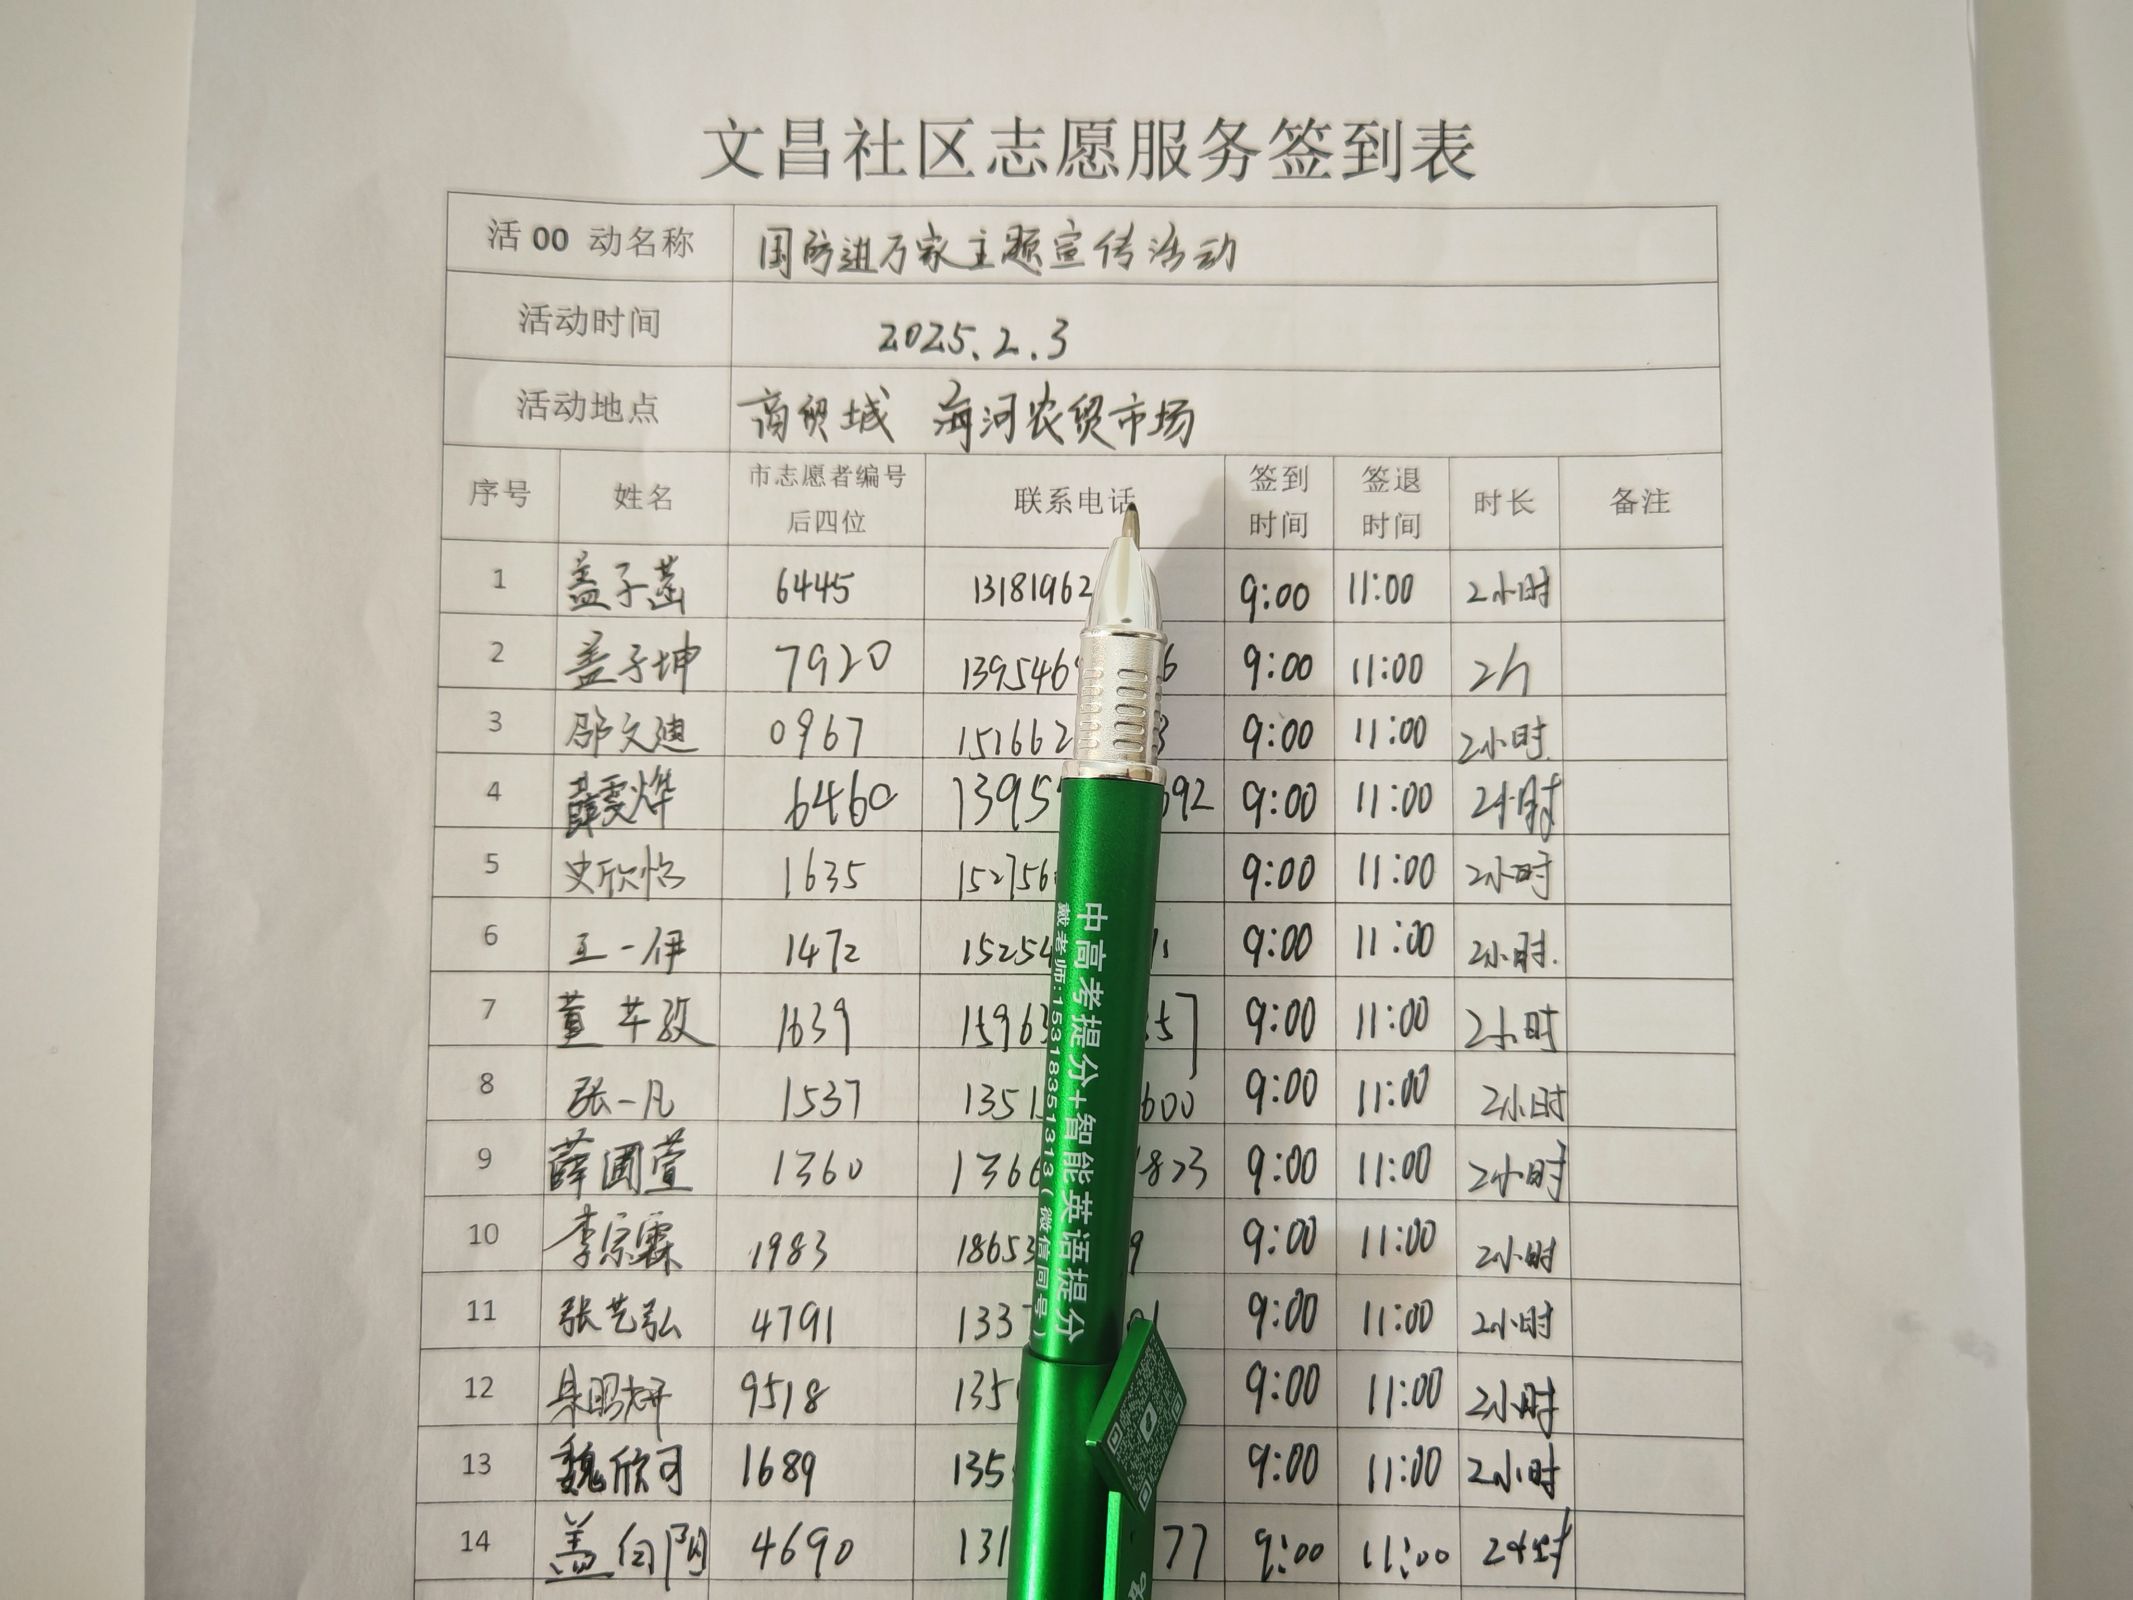 文昌社区志愿服务签到表
活 00 动名称 国防进万家主题宣传活动
活动时间 2025.2.3
活动地点 商贸城 海河农贸市场
序号 姓名 市志愿者编号后四位 联系电话 签到时间 签退时间 时长 备注
1 盖子菡 6445 13181962 9:00 11:00 2小时
2 盖子坤 7920 1395469 6 9:00 11:00 2h
3 邵文迪 0967 151662 3 9:00 11:00 2小时.
4 薛雯烨 6460 1395 692 9:00 11:00 2小时
5 史欣怡 1635 152756 9:00 11:00 2小时
6 王一伊 1472 15254 1 9:00 11:00 2小时.
7 董芊孜 1639 15963 57 9:00 11:00 2小时
8 张一凡 1537 1351 600 9:00 11:00 2小时
9 薛圃萱 1360 1366 823 9:00 11:00 2小时
10 李宗霖 1983 18653 9 9:00 11:00 2小时
11 张艺弘 4791 133 01 9:00 11:00 2小时
12 9518 135 9:00 11:00 2小时
13 魏欣可 1689 135 9:00 11:00 2小时
14 盖向阳 4690 131 77 9:00 11:00 2小时
中高考提分+智能英语提分
戴老师:15318351313(微信同号)